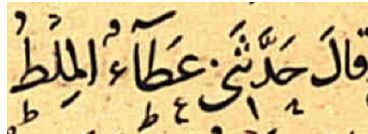 قَالَ حَدَّثَنِي عَطَآءُ المِلْطُ